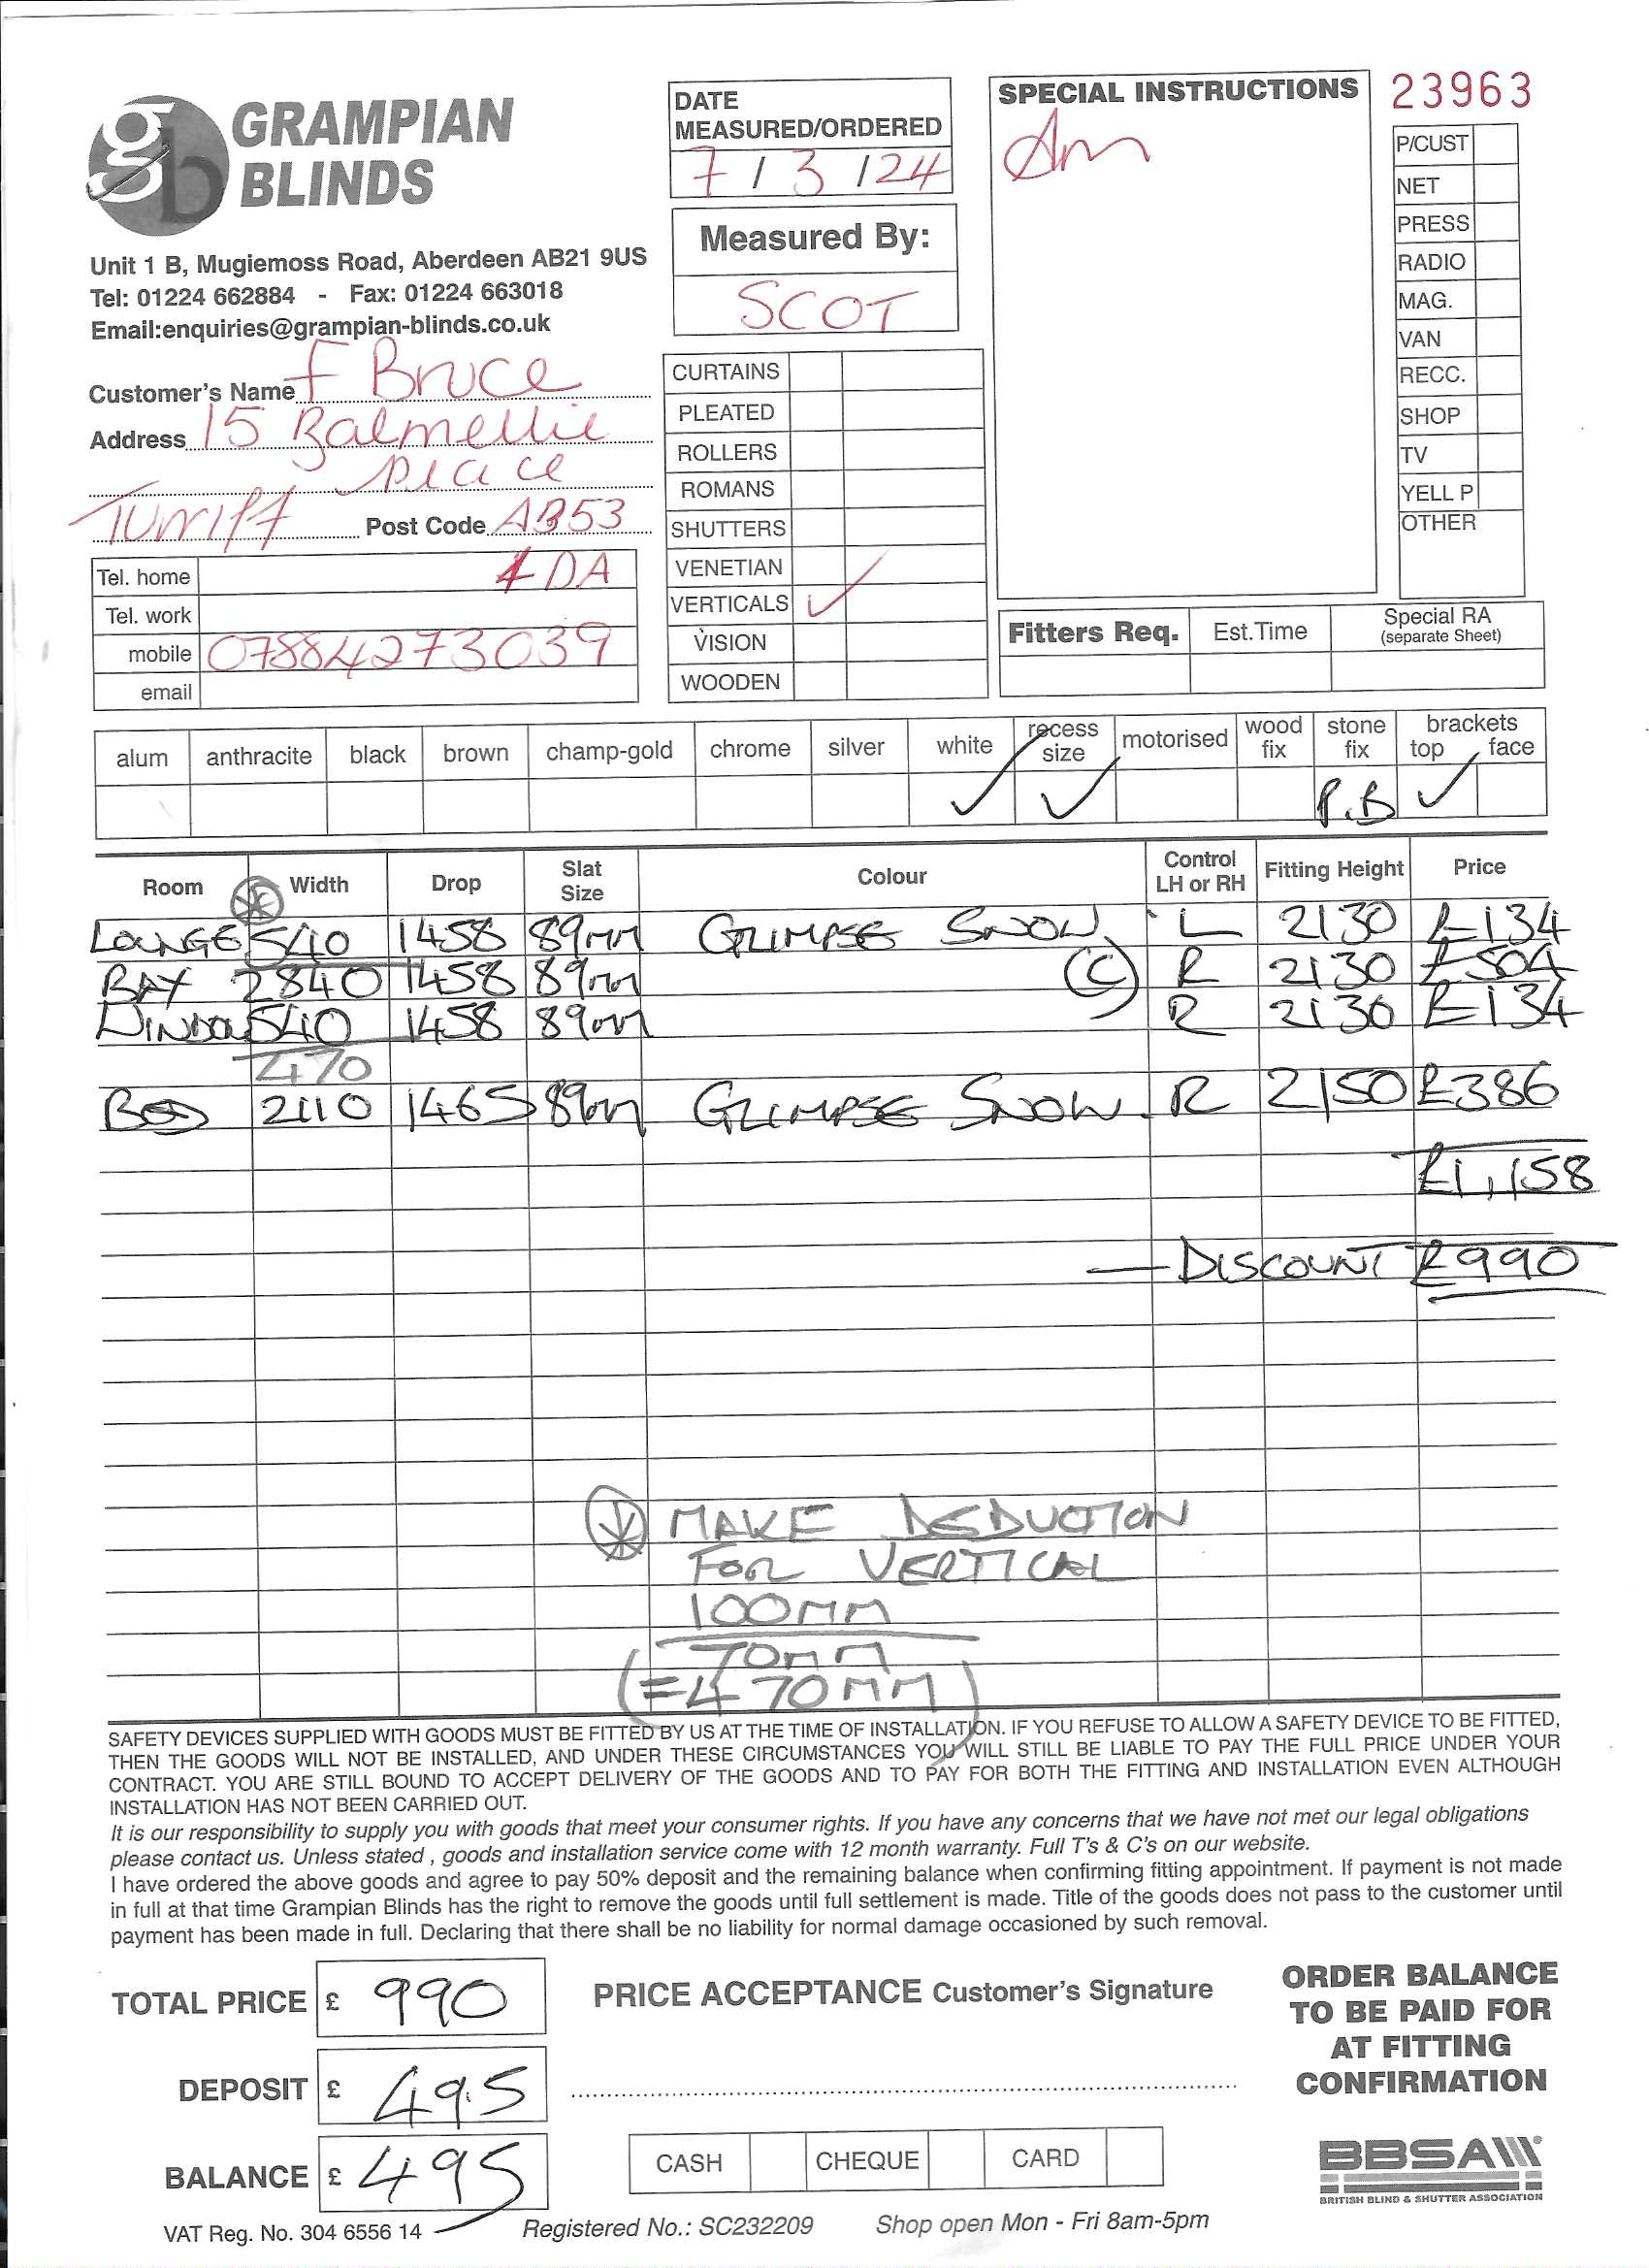 GRAMPIAN
BLINDS
Unit 1 B, Mugiemoss Road, Aberdeen AB21 9US
Tel: 01224 662884 - Fax: 01224 663018
Email:enquiries@grampian-blinds.co.uk
Customer's Name F Bruce
Address 15 Balmellie
Place
Turriff Post Code AB53
Tel. home 4DA
Tel. work
mobile 07884273039
email
DATE
MEASURED/ORDERED
7 / 3 / 24
Measured By:
SCOT
CURTAINS
PLEATED
ROLLERS
ROMANS
SHUTTERS
VENETIAN
VERTICALS ✓
VISION
WOODEN
SPECIAL INSTRUCTIONS
Am
23963
P/CUST
NET
PRESS
RADIO
MAG.
VAN
RECC.
SHOP
TV
YELL P
OTHER
Fitters Req. Est.Time Special RA
(separate Sheet)
alum anthracite black brown champ-gold chrome silver white recess size motorised wood fix stone fix brackets top face
✓ ✓ P.B ✓
Room Width Drop Slat Size Colour Control LH or RH Fitting Height Price
LOUNGE 540 1458 89mm GLIMPSE SNOW. L 2130 £134
BAY 2840 1458 89mm (C) R 2130 £504
WINDOW 540 1458 89mm R 2130 £134
470
BED 2110 1465 89mm GLIMPSE SNOW. R 2150 £386
£1,158
— DISCOUNT £990
* MAKE DEDUCTION
FOR VERTICAL
100MM
70MM
(=470MM)
SAFETY DEVICES SUPPLIED WITH GOODS MUST BE FITTED BY US AT THE TIME OF INSTALLATION. IF YOU REFUSE TO ALLOW A SAFETY DEVICE TO BE FITTED,
THEN THE GOODS WILL NOT BE INSTALLED, AND UNDER THESE CIRCUMSTANCES YOU WILL STILL BE LIABLE TO PAY THE FULL PRICE UNDER YOUR
CONTRACT. YOU ARE STILL BOUND TO ACCEPT DELIVERY OF THE GOODS AND TO PAY FOR BOTH THE FITTING AND INSTALLATION EVEN ALTHOUGH
INSTALLATION HAS NOT BEEN CARRIED OUT.
It is our responsibility to supply you with goods that meet your consumer rights. If you have any concerns that we have not met our legal obligations
please contact us. Unless stated , goods and installation service come with 12 month warranty. Full T's & C's on our website.
I have ordered the above goods and agree to pay 50% deposit and the remaining balance when confirming fitting appointment. If payment is not made
in full at that time Grampian Blinds has the right to remove the goods until full settlement is made. Title of the goods does not pass to the customer until
payment has been made in full. Declaring that there shall be no liability for normal damage occasioned by such removal.
TOTAL PRICE £ 990
DEPOSIT £ 495
BALANCE £ 495
PRICE ACCEPTANCE Customer's Signature
CASH CHEQUE CARD
ORDER BALANCE
TO BE PAID FOR
AT FITTING
CONFIRMATION
BBSA
BRITISH BLIND & SHUTTER ASSOCIATION
VAT Reg. No. 304 6556 14 Registered No.: SC232209 Shop open Mon - Fri 8am-5pm